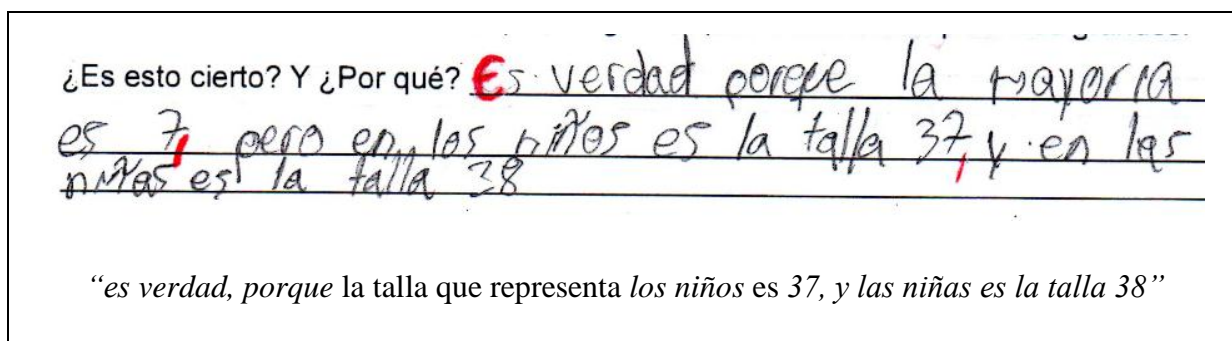 ¿Es esto cierto? Y ¿Por qué? Es verdad porque la mayoria
es 7, pero en los niños es la talla 37, y en las
niñas es la talla 38
“es verdad, porque la talla que representa los niños es 37, y las niñas es la talla 38”